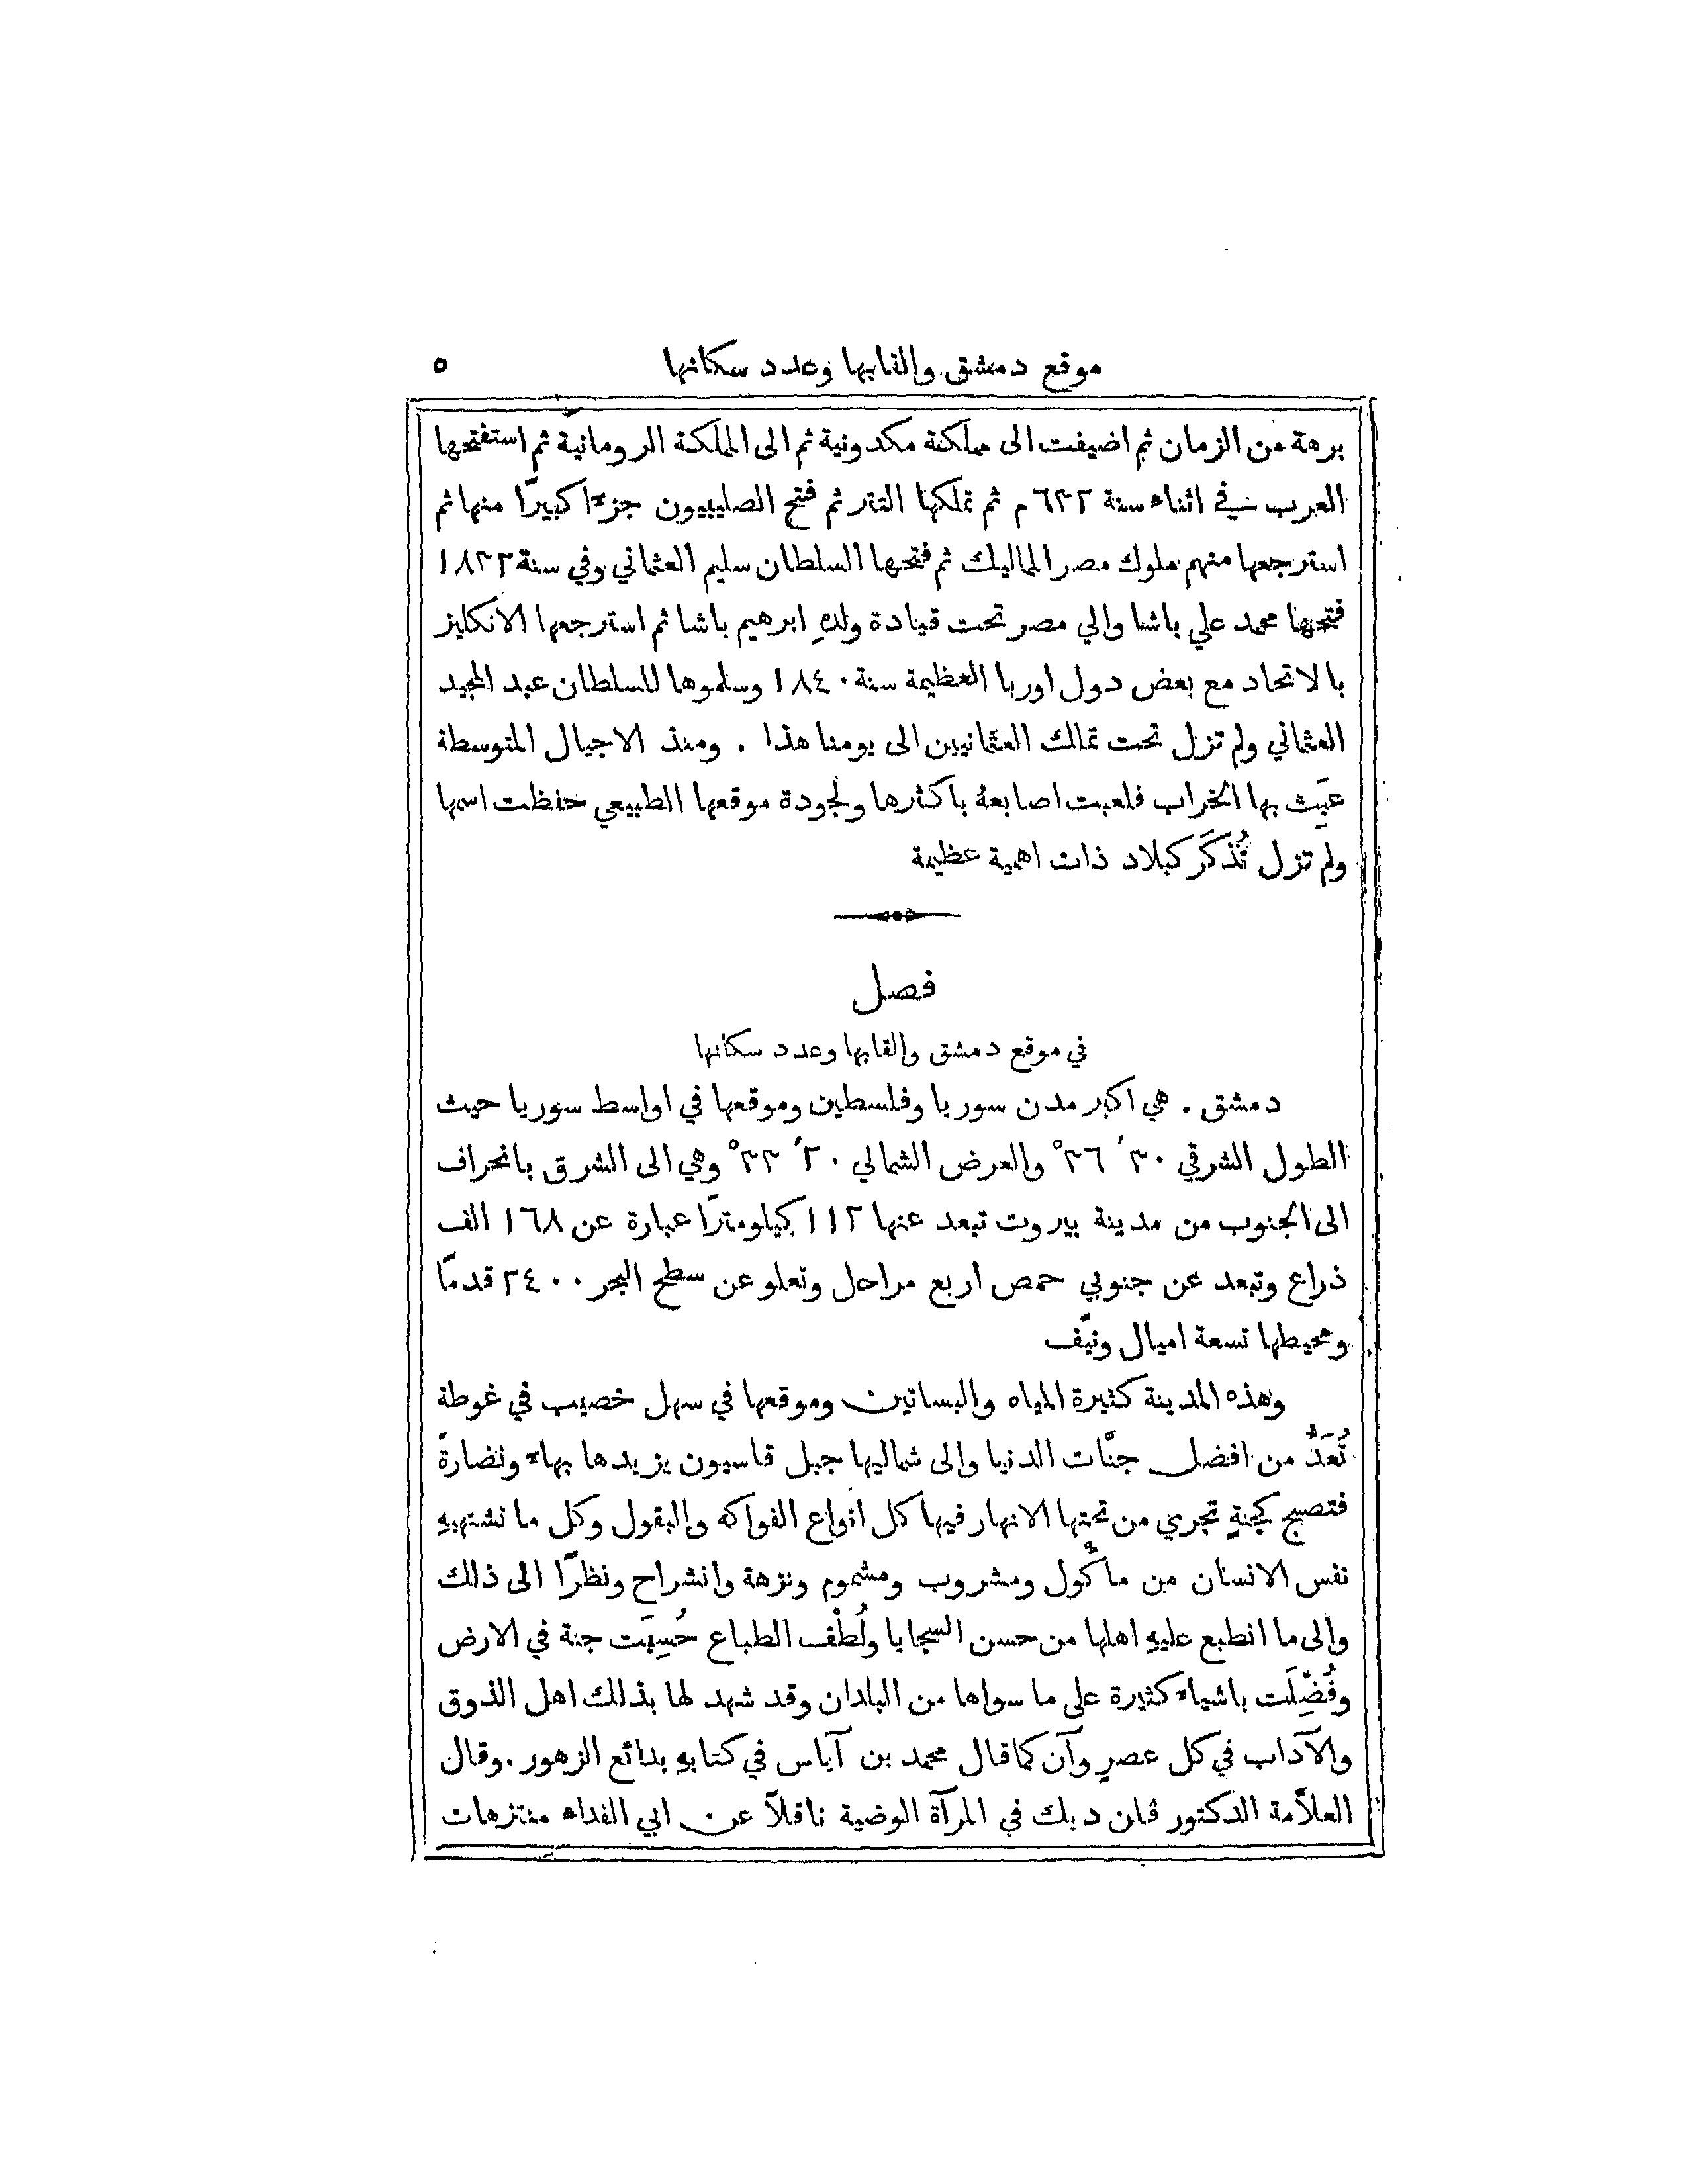 موقع دمشق والقابها وعدد سكانها ٥
برهة من الزمان ثم اضيفت الى مملكة مكدونية ثم الى المملكة الرومانية ثم استفتحها
العرب في اثناء سنة ٦٣٢ م ثم تملكها التتر ثم فتح الصليبيون جزءًا كبيرًا منها ثم
استرجعها منهم ملوك مصر المماليك ثم فتحها السلطان سليم العثماني وفي سنة ١٨٣٢
فتحها محمد علي باشا والي مصر تحت قيادة ولدهِ ابرهيم باشا ثم استرجعها الانكليز
بالاتحاد مع بعض دول اوربا العظيمة سنة ١٨٤٠ وسلموها للسلطان عبد المجيد
العثماني ولم تزل تحت تملك العثمانيين الى يومنا هذا . ومنذ الاجيال المتوسطة
عَبِث بها الخراب فلعبت اصابعهُ باكثرها ولجودة موقعها الطبيعي حفظت اسمها
ولم تزل تُذكَر كبلاد ذات اهمية عظيمة
فصل
في موقع دمشق والقابها وعدد سكانها
دمشق . هي اكبر مدن سوريا وفلسطين وموقعها في اواسط سوريا حيث
الطول الشرقي ٣٠′ ٣٦° والعرض الشمالي ٢٠′ ٣٣° وهي الى الشرق بانحراف
الى الجنوب من مدينة بيروت تبعد عنها ١١٢ كيلومترًا عبارة عن ١٦٨ الف
ذراع وتبعد عن جنوبي حمص اربع مراحل وتعلو عن سطح البحر ٢٤٠٠ قدمًا
ومحيطها تسعة اميال ونيّف
وهذه المدينة كثيرة المياه والبساتين وموقعها في سهل خصيب في غوطة
تُعَدُّ من افضل جنَّات الدنيا والى شماليها جبل قاسيون يزيدها بهاء ونضارةً
فتصبح كجنةٍ تجري من تحتها الانهار فيها كل انواع الفواكه والبقول وكل ما تشتهيهِ
نفس الانسان من مأكول ومشروب ومشموم ونزهة وانشراح ونظرًا الى ذلك
والى ما انطبع عليهِ اهلها من حسن السجايا ولُطْف الطباع حُسِبَت جنة في الارض
وفُضِّلَت باشياء كثيرة على ما سواها من البلدان وقد شهد لها بذلك اهل الذوق
والآداب في كل عصرٍ وآن كما قال محمد بن آياس في كتابهِ بدائع الزهور . وقال
العلاَّمة الدكتور ڤان ديك في المرآة الوضية ناقلاً عن ابي الفداء منتزهات